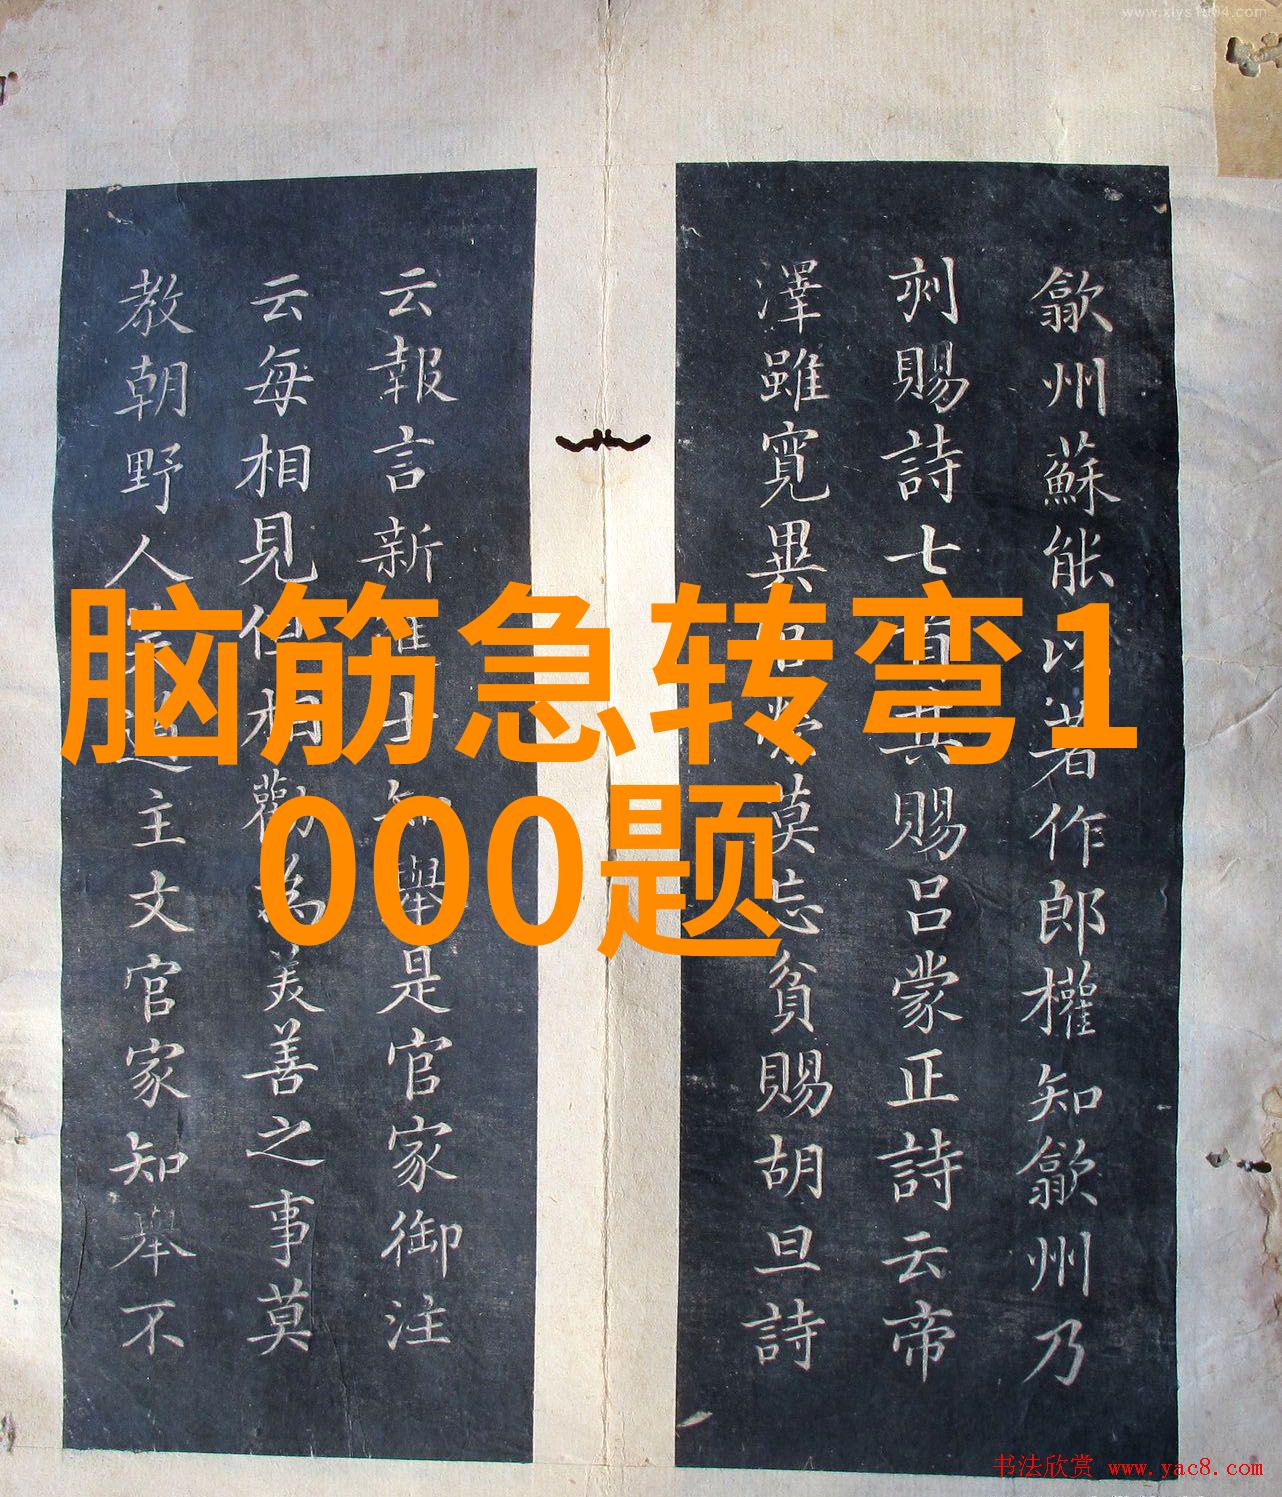 www.xiys1004.com
脑筋急转弯1
000题
歙州蘇能以著作郎權知歙州乃
刻賜詩七首其賜呂蒙正詩云帝
澤雖寬異榮莫忘貧賜胡旦詩
云報言新進士知舉是官家御注
云每相見但相勸為美善之事莫
教朝野人道主文官家知舉不
书法欣赏 www.yac8.com